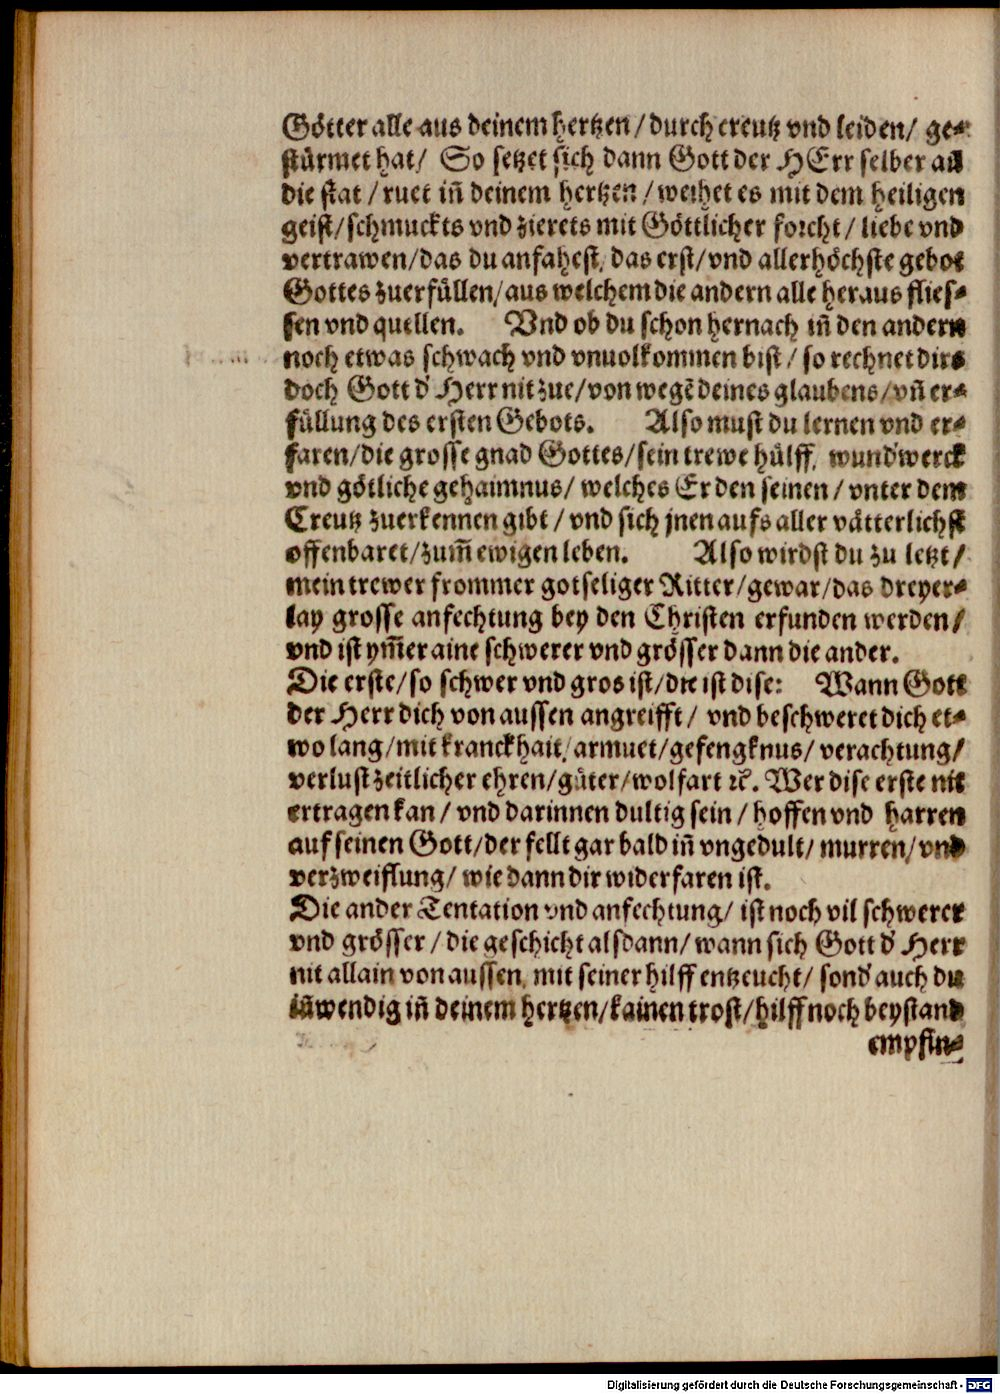 Götter alle aus deinem hertzen/durch creutz vnd leiden/ ge-
stürmet hat/ So setzet sich dann Gott der HErr selber an
die stat/ruet iñ deinem hertzen/weihet es mit dem heiligen
geist/schmuckts vnd zierets mit Göttlicher forcht/liebe vnd
vertrawen/das du anfahest, das erst/vnd allerhöchste gebot
Gottes zuerfüllen/aus welchem die andern alle heraus flies-
sen vnd quellen. Vnd ob du schon hernach iñ den andern
noch etwas schwach vnd vnuolkommen bist/so rechnet dirs
doch Gott d' Herr nit zue/von wegē deines glaubens/vñ er-
füllung des ersten Gebots. Also must du lernen vnd er-
faren/die grosse gnad Gottes/sein trewe hülff, wund'werck
vnd götliche gehaimnus/ welches Er den seinen/vnter dem
Creutz zuerkennen gibt/vnd sich jnen aufs aller vätterlichst
offenbaret/zum̄ ewigen leben. Also wirdst du zu letzt/
mein trewer frommer gotseliger Ritter/gewar/das dreyer-
lay grosse anfechtung bey den Christen erfunden werden/
vnd ist ym̄er aine schwerer vnd grösser dann die ander.
Die erste/so schwer vnd gros ist/die ist dise: Wann Gott
der Herr dich von aussen angreifft/ vnd beschweret dich et-
wo lang/mit kranckhait/armuet/gefengknus/verachtung/
verlust zeitlicher ehren/güter/wolfart ꝛc. Wer dise erste nit
ertragen kan/vnd darinnen dultig sein/hoffen vnd harren
auf seinen Gott/der fellt gar bald iñ vngedult/murren/vnd
verzweiflung/ wie dann dir widerfaren ist.
Die ander Tentation vnd anfechtung/ ist noch vil schwerer
vnd grösser/die geschicht alsdann/wann sich Gott d' Herr
nit allain von aussen, mit seiner hilff entzeucht/ sond' auch du
iñwendig iñ deinem hertzen/kainen trost/hilff noch beystand
empfin-
Digitalisierung gefördert durch die Deutsche Forschungsgemeinschaft - DFG